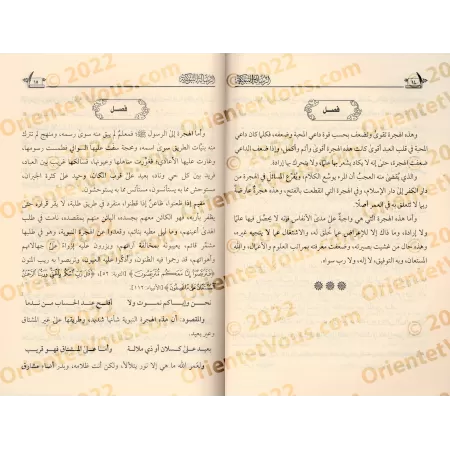 ٦٤
الرسالة التبوكية
فصل
وهذه الهجرة تقوى وتضعف بحسب قوة داعي المحبة وضعفه، فكلما كان داعي
المحبة في قلب العبد أقوى كانت هذه الهجرة أقوى وأتم وأكمل، وإذا ضعف الداعي
ضعفت الهجرة، حتى إنه لا يكاد يشعر بها علمًا، ولا يتحرك بها إرادة.
والذي يُقضى منه العجب أن المرء يوسّع الكلام، ويُفرّع المسائل في الهجرة من
دار الكفر إلى دار الإسلام، وفي الهجرة التي انقطعت بالفتح، وهذه هجرة عارضة
ربما لا تتعلق به في العمر أصلًا.
وأما هذه الهجرة التي هي واجبة على مدى الأنفاس فإنه لا يحصل فيها علمًا
ولا إرادة، وما ذاك إلا للإعراض عما خُلق له، والاشتغال عما لا ينجيه غيره،
وهذه حال من غشيت بصيرته، وضعفت معرفته بمراتب العلوم والأعمال، والله
المستعان، وبه التوفيق، لا إله إلا هو، ولا رب سواه.
الرسالة التبوكية
٦٥
فصل
وأما الهجرة إلى الرسول ﷺ؛ فمعلم لم يبق منه سوى رسمه، ومنهج لم تترك
منه بنيات الطريق سوى اسمه، ومحجة سفت عليها السوافي فطمست رسومها،
وغارت عليها الأعادي؛ فغورت مناهلها وعيونها، فسالكها غريب بين العباد،
فريد بين كل حي وناد، بعيد على قرب المكان، وحيد على كثرة الجيران،
مستوحش مما به يستأنسون، مستأنس مما به يستوحشون،
مقيم إذا ظعنوا، ظاعن إذا قطنوا، منفرد في طريق طلبه، لا يقر قراره حتى
يظفر بأربه، فهو الكائن معهم بجسده، البائن منهم بمقصده، نامت في طلب
الهدى أعينهم، وما ليل مطيته بنائم، وقعدوا عن الهجرة النبوية، وهو في طلبها
مشمر قائم، يعيبونه بمخالفة آرائهم، ويزرون عليه إزراءً على جهالاتهم
وأهوائهم، قد رجموا فيه الظنون،
نحن وإياكم نموت ولا
أفلح عند الحساب من ندما
والمقصود: أن هذه الهجرة النبوية شأنها شديد، وطريقها على غير المشتاق
وعر بعيد.
بعيد على كسلان أو ذي ملالة
وأما على المشتاق فهو قريب
ولعمر الله ما هي إلا نور يتلألأ، ولكن أنت ظلامه، وبدر أضاء مشارق
OrientetVous.com © 2022